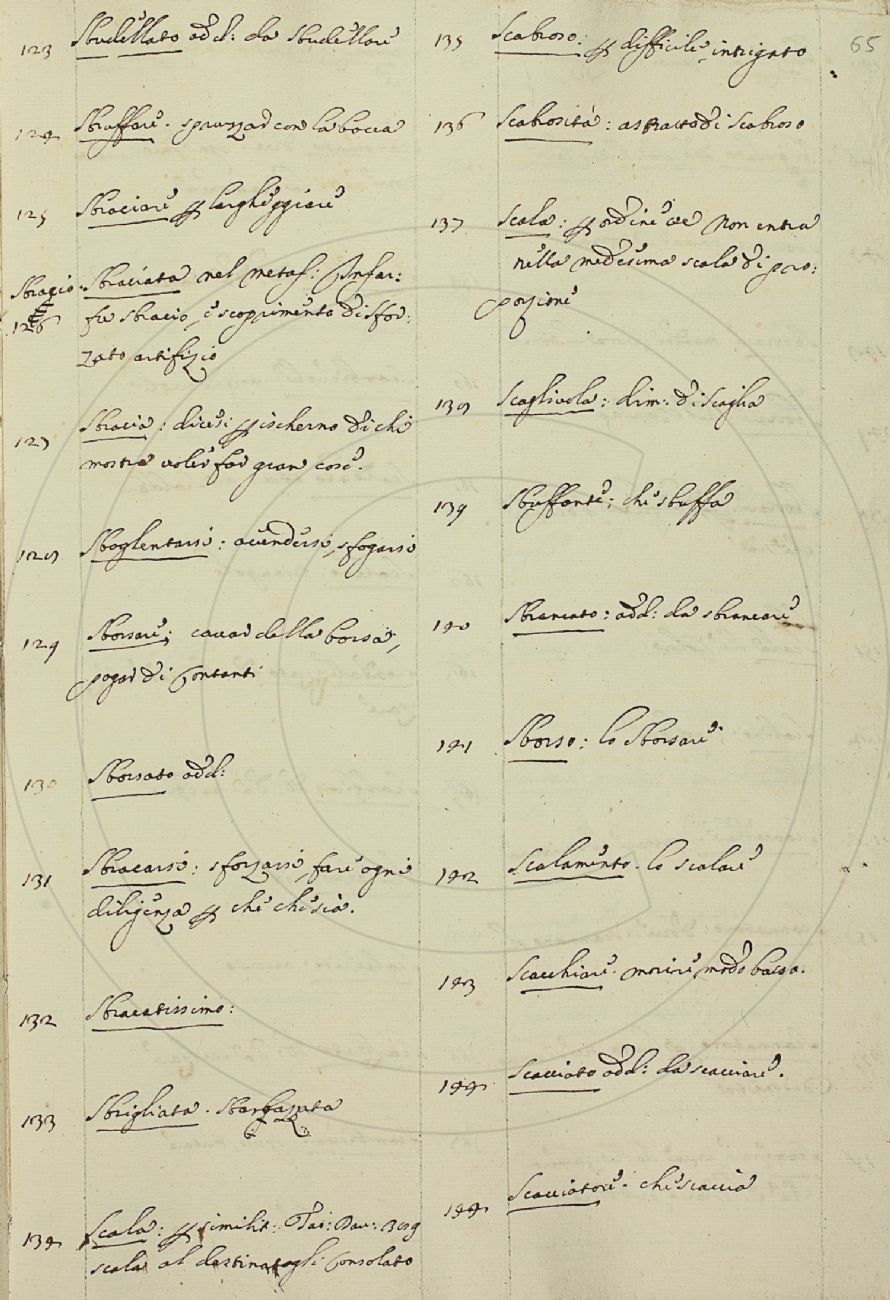 65
123 Sbudellato add: da sbudellare
124 Sbruffare. spruzzar con la bocca
125 Sbraciare p largheggiare
Sbracio. Sbraciata nel metaf:
126 fu sbracio, e scoprimento di sfor:
zato artifizio
127 Sbracia: dicesi p ischerno di chi
mostra voler far gran cose.
128 Sboglentarsi: accendersi, sfogarsi
129 Sborsare; cavar della borsa,
pagar di contanti
130 Sborsato add:
131 Sbracarsi: sforzarsi, fare ogni
diligenza p che che sia.
132 Sbracatissimo:
133 Sbrigliata. Sbarbazzata
134 Scala: p similit: Tac: Dav:
scala al destinatogli Consolato
135 Scabroso: p difficile, intrigato
136 Scabrosità: astratto di Scabroso
137 Scala: p ordine cce non entra
nella medesima scala di pro:
porzione
138 Scagliuola: dim: di Scaglia
139 Sbuffante; che sbuffa
140 Sbrancato: add: da sbrancare
141 Sborso: lo Sborsare
142 Scalamento. lo scalare
143 Scacchiare. morire, modo basso.
144 Scacciato add: da scacciare.
144 Scacciatore. che scaccia